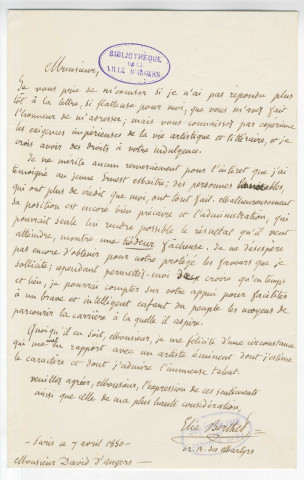 BIBLIOTHÈQUE
DE LA
VILLE D'ANGERS
Monsieur,
Je vous prie de m'excuser si je n'ai pas répondu plus
tôt à la lettre, si flatteuse pour moi, que vous m'avez fait
l'honneur de m'adresser; mais vous connaissez par expérience
les exigences impérieuses de la vie artistique et littéraire, et je
crois avoir des droits à votre indulgence.
Je ne mérite aucun remerciement pour l'intérêt que j'ai
témoigné au jeune Ernest des personnes
qui ont plus de crédit que moi, ont tout fait. Malheureusement
sa position est encore bien précaire et l'administration, qui
pourrait seule lui rendre possible le résultat qu'il veut
atteindre, montre une tiédeur fâcheuse. Je ne désespère
pas encore d'obtenir pour notre protégé les faveurs que je
sollicite; cependant permettez-moi de croire qu'en temps
et lieu, je pourrai compter sur votre appui pour faciliter
à un brave et intelligent enfant du peuple les moyens de
parcourir la carrière à la quelle il aspire.
Quoiqu'il en soit, Monsieur, je me félicite d'une circonstance
qui me met en rapport avec un artiste éminent dont j'estime
le caractère et dont j'admire l'immense talent.
veuillez agréer, Monsieur, l'expression de ces sentiments
ainsi que celle de ma plus haute considération,
Elie Berthet
r. des Martyrs
Paris ce 7 avril 1850 —
Monsieur David d'Angers —